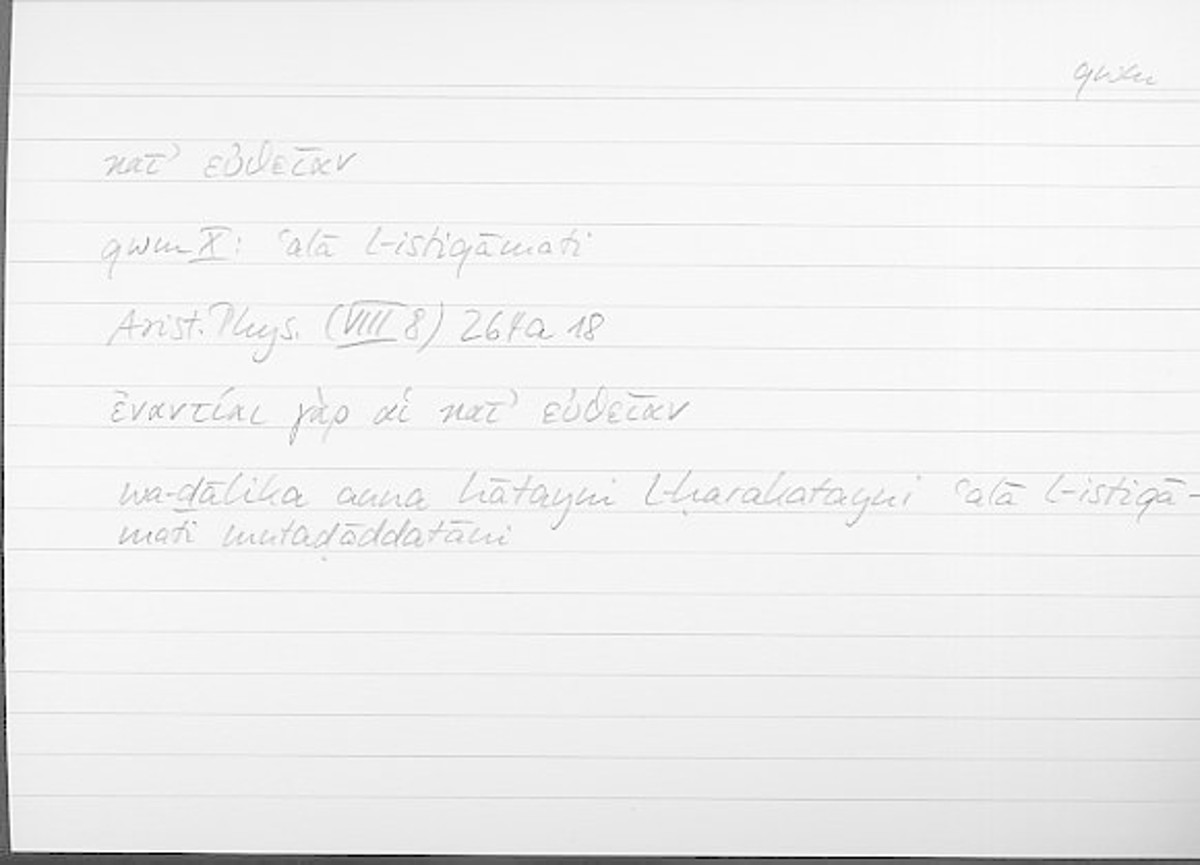 qwm
κατ' εὐθεῖαν
qwm X: ʿalā l-istiqāmati
Arist. Phys. (VIII 8) 264a 18
ἐναντίαι γὰρ αἱ κατ' εὐθεῖαν
wa-ḏālika anna hātayni l-ḥarakatayni ʿalā l-istiqā-
mati mutaḍāddatāni